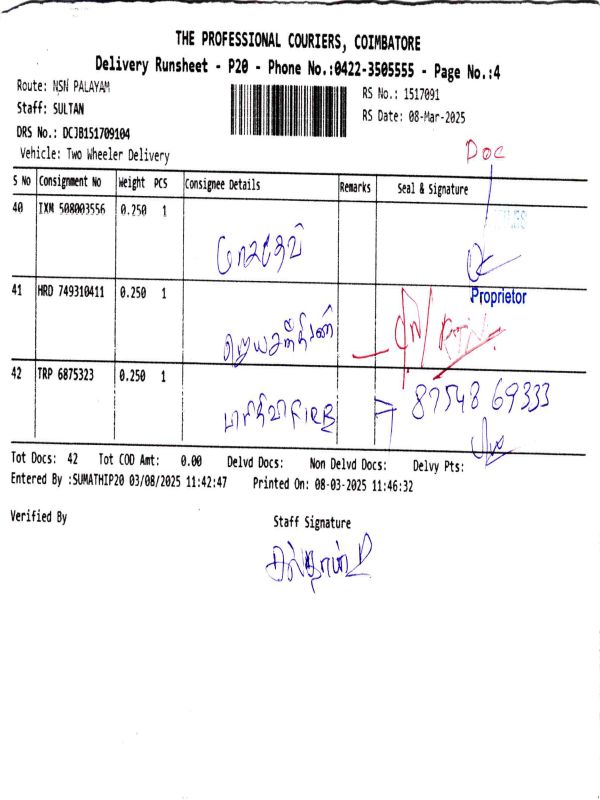 THE PROFESSIONAL COURIERS, COIMBATORE
Delivery Runsheet - P20 - Phone No.:0422-3505555 - Page No.:4
Route: NSN PALAYAM
RS No.: 1517091
Staff: SULTAN
RS Date: 08-Mar-2025
DRS No.: DCJB151709104
Vehicle: Two Wheeler Delivery
Doc
S No Consignment No Weight PCS Consignee Details Remarks Seal & Signature
40 IXM 508003556 0.250 1
Proprietor
41 HRD 749310411 0.250 1
42 TRP 6875323 0.250 1
87548 69333
Tot Docs: 42 Tot COD Amt: 0.00 Delvd Docs: Non Delvd Docs: Delvy Pts:
Entered By :SUMATHIP20 03/08/2025 11:42:47 Printed On: 08-03-2025 11:46:32
Verified By
Staff Signature